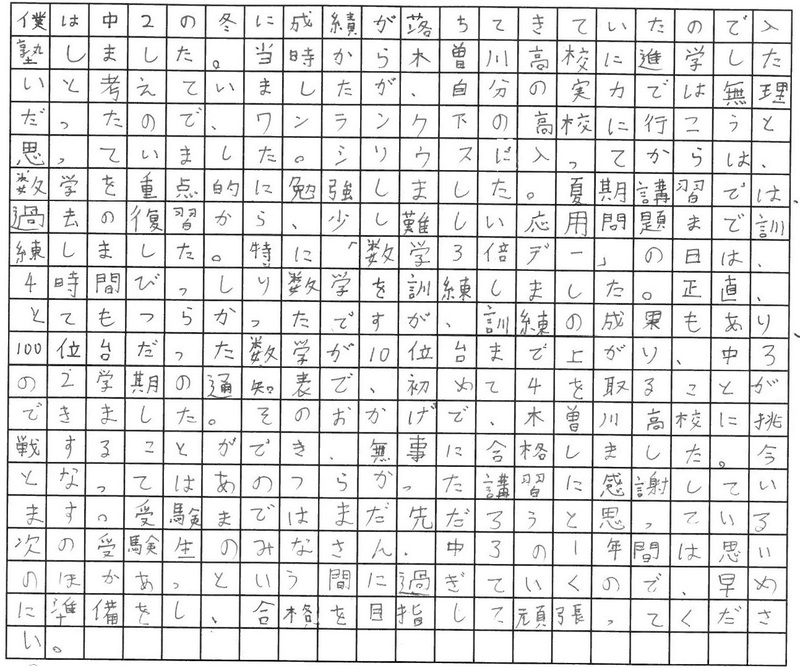 僕は中2の冬に成績が落ちてきていたので入
塾しました。当時から木曽川高校に進学した
いと考えていましたが、自分の実力では無理
だったので、ワンランク下の高校に行こうと
思っていました。シリウスに入ってからは、
数学を重点的に勉強しました。夏期講習では、
過去の復習から、少し難しい応用問題まで訓
練しました。特に「数学3倍デー」の日は、
4時間びっしり数学を訓練しました。正直、
とてもつらかったですが、訓練の成果もあり、
100位台だった数学が10位台まで上がり、中3
の2学期の通知表で、初めて4を取ることが
できました。そのおかげで、木曽川高校に挑
戦することができ、無事に合格しました。今
となってはあのつらかった講習に感謝してい
ます。受験まではまだ先だろうと思っている
次の受験生のみなさん、中3の1年間は思い
のほかあっという間に過ぎていくので、早め
に準備をし、合格を目指して頑張ってくださ
い。